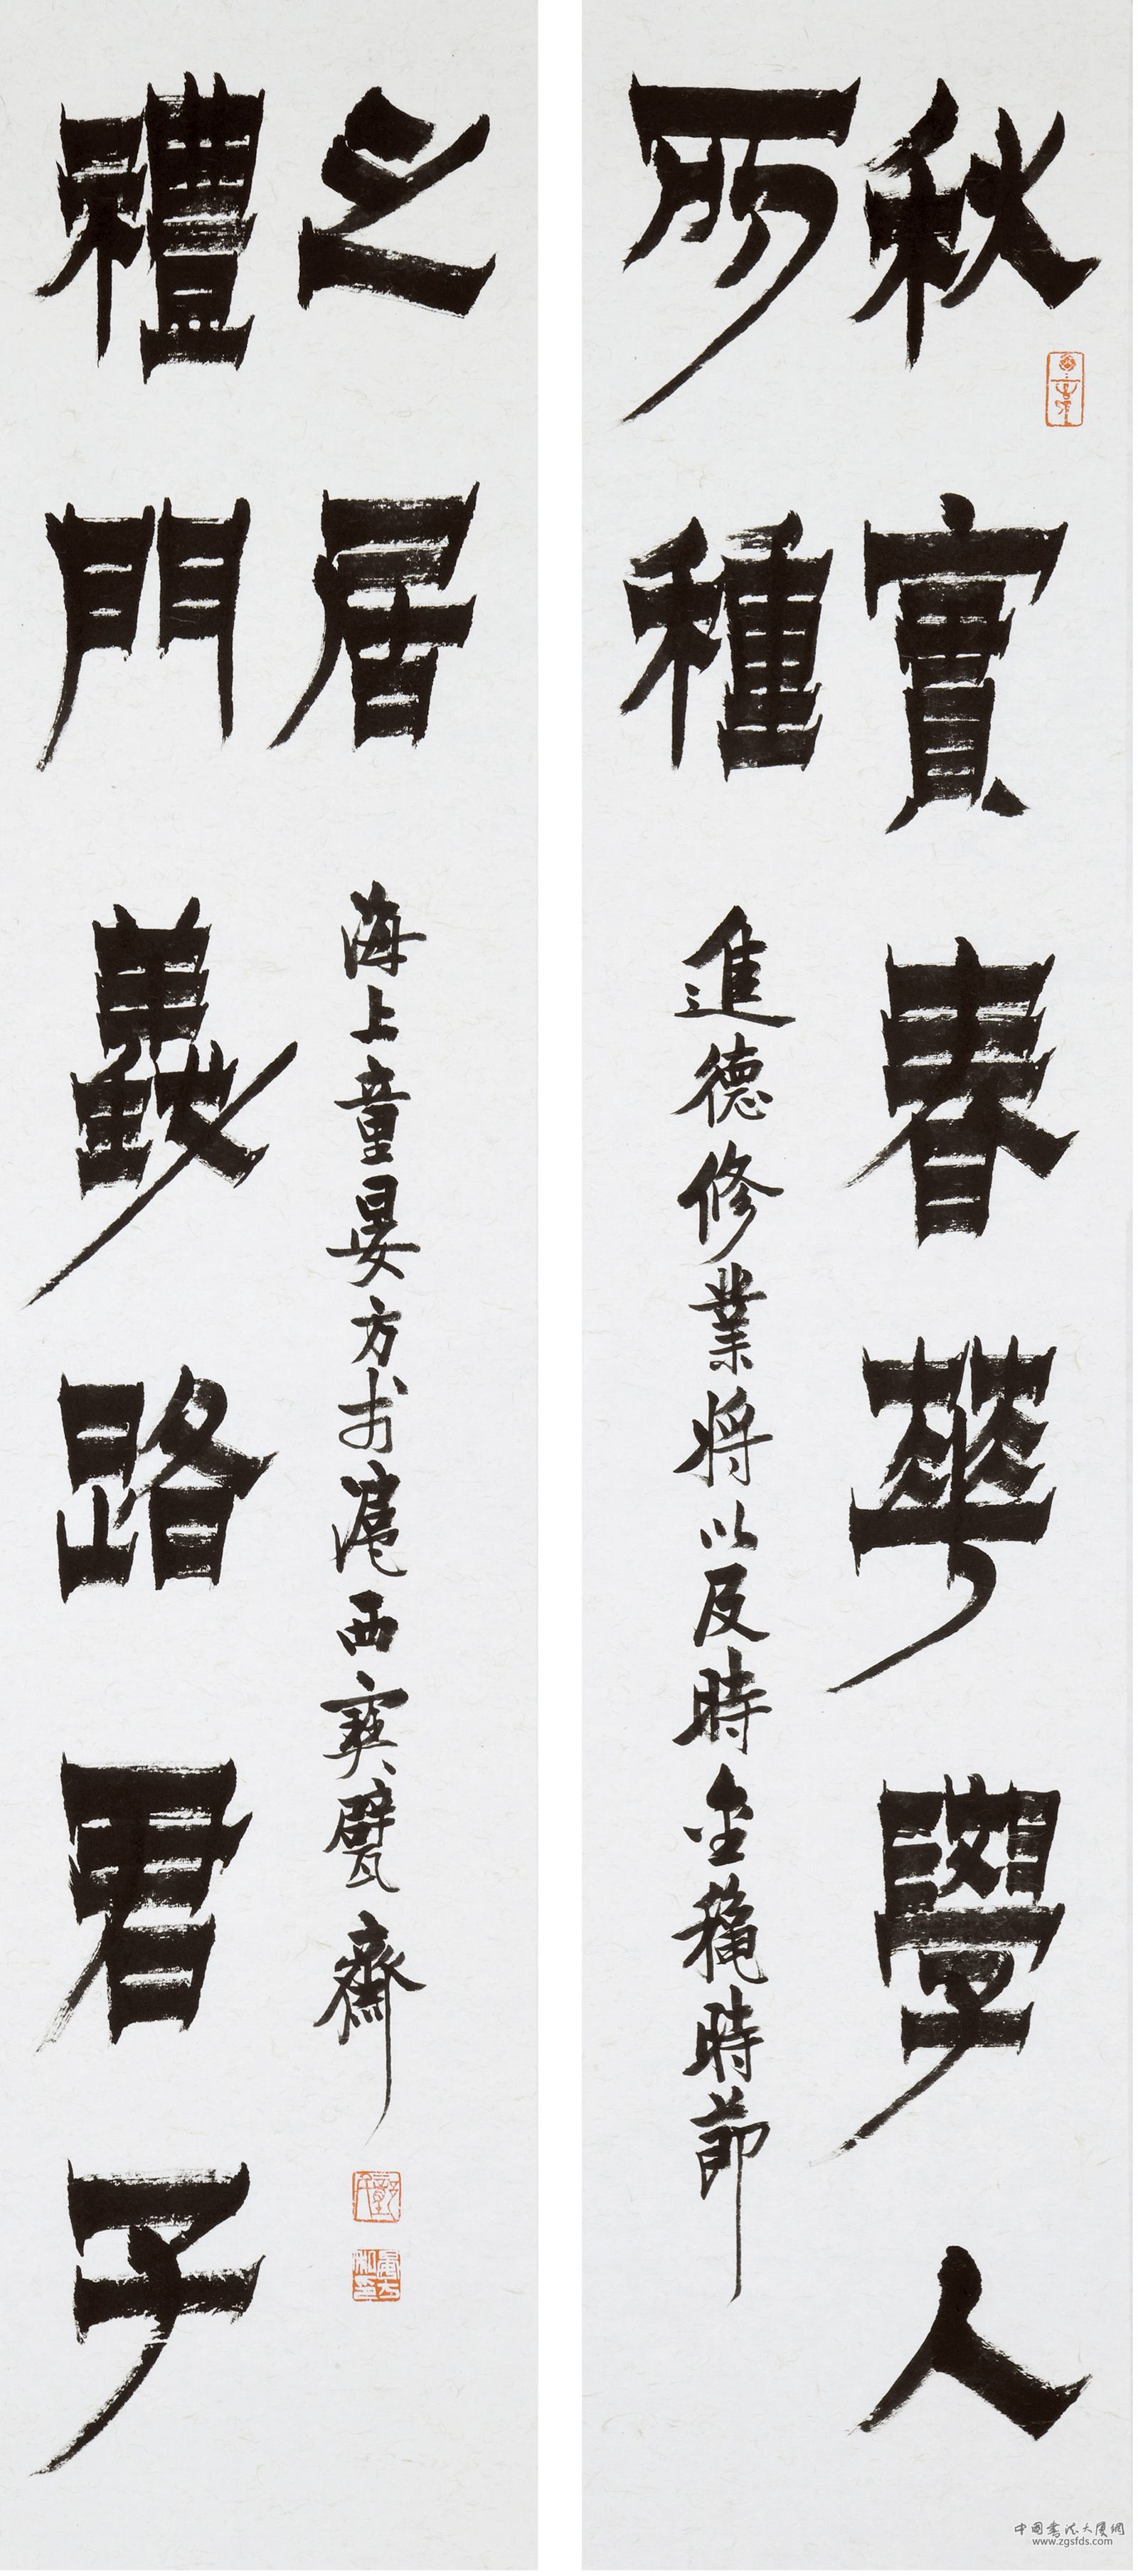 秋實春華學人
所種
進德修業將以及時金穐時節
禮門義路君子
之居
海上童晏方於滬西寶甓齋
中國書法大厦網
www.zgsfds.com